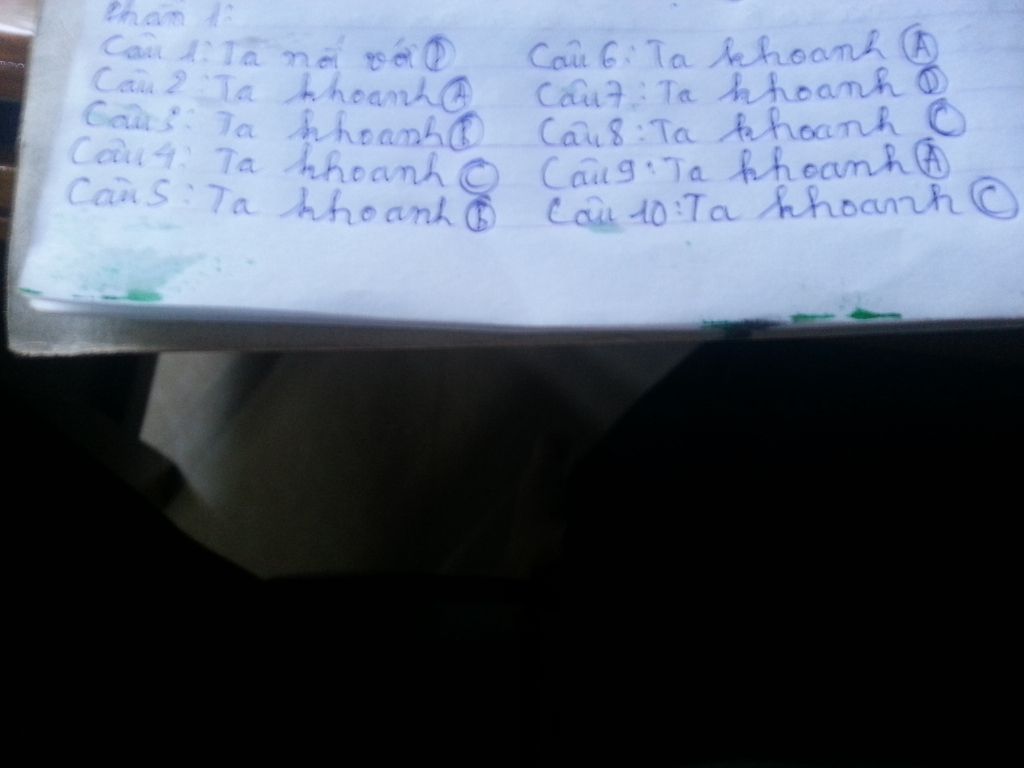 Phần 1:
Câu 1: Ta nối với D
Câu 2: Ta khoanh A
Câu 3: Ta khoanh B
Câu 4: Ta khoanh C
Câu 5: Ta khoanh B
Câu 6: Ta khoanh A
Câu 7: Ta khoanh D
Câu 8: Ta khoanh C
Câu 9: Ta khoanh A
Câu 10: Ta khoanh C